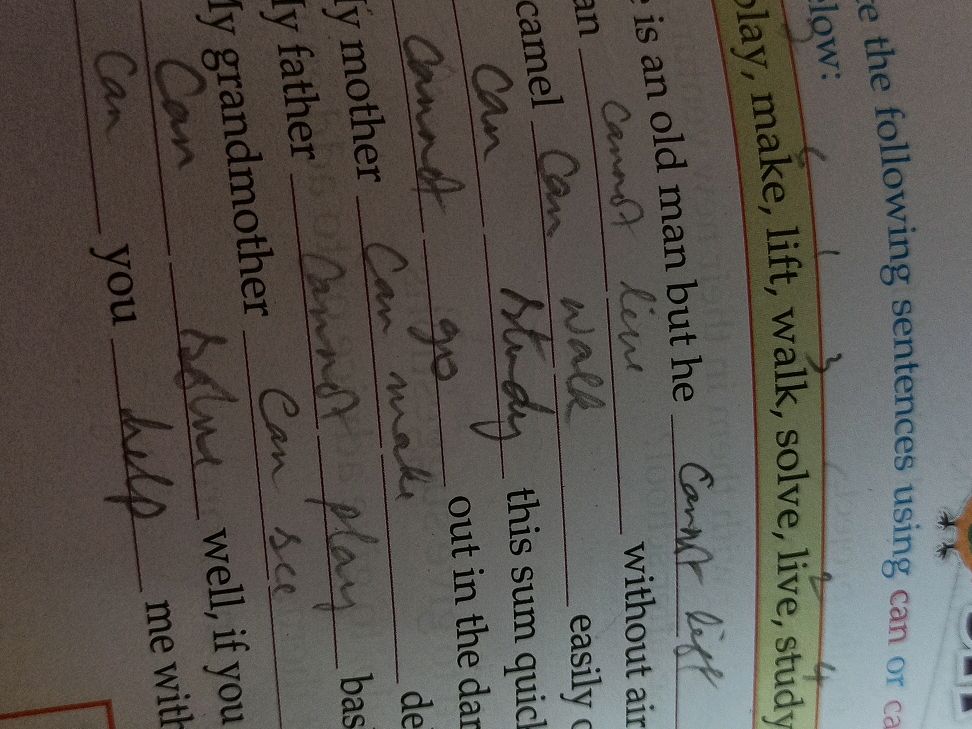 the following sentences using can or ca
elow:
6 1 3 2 4
play, make, lift, walk, solve, live, study
is an old man but he cannot lift
an cannot live without air
camel can walk easily
can study this sum quick
cannot go out in the dar
My mother can make de
My father cannot play bas
My grandmother can see
can solve well, if you
can you help me with